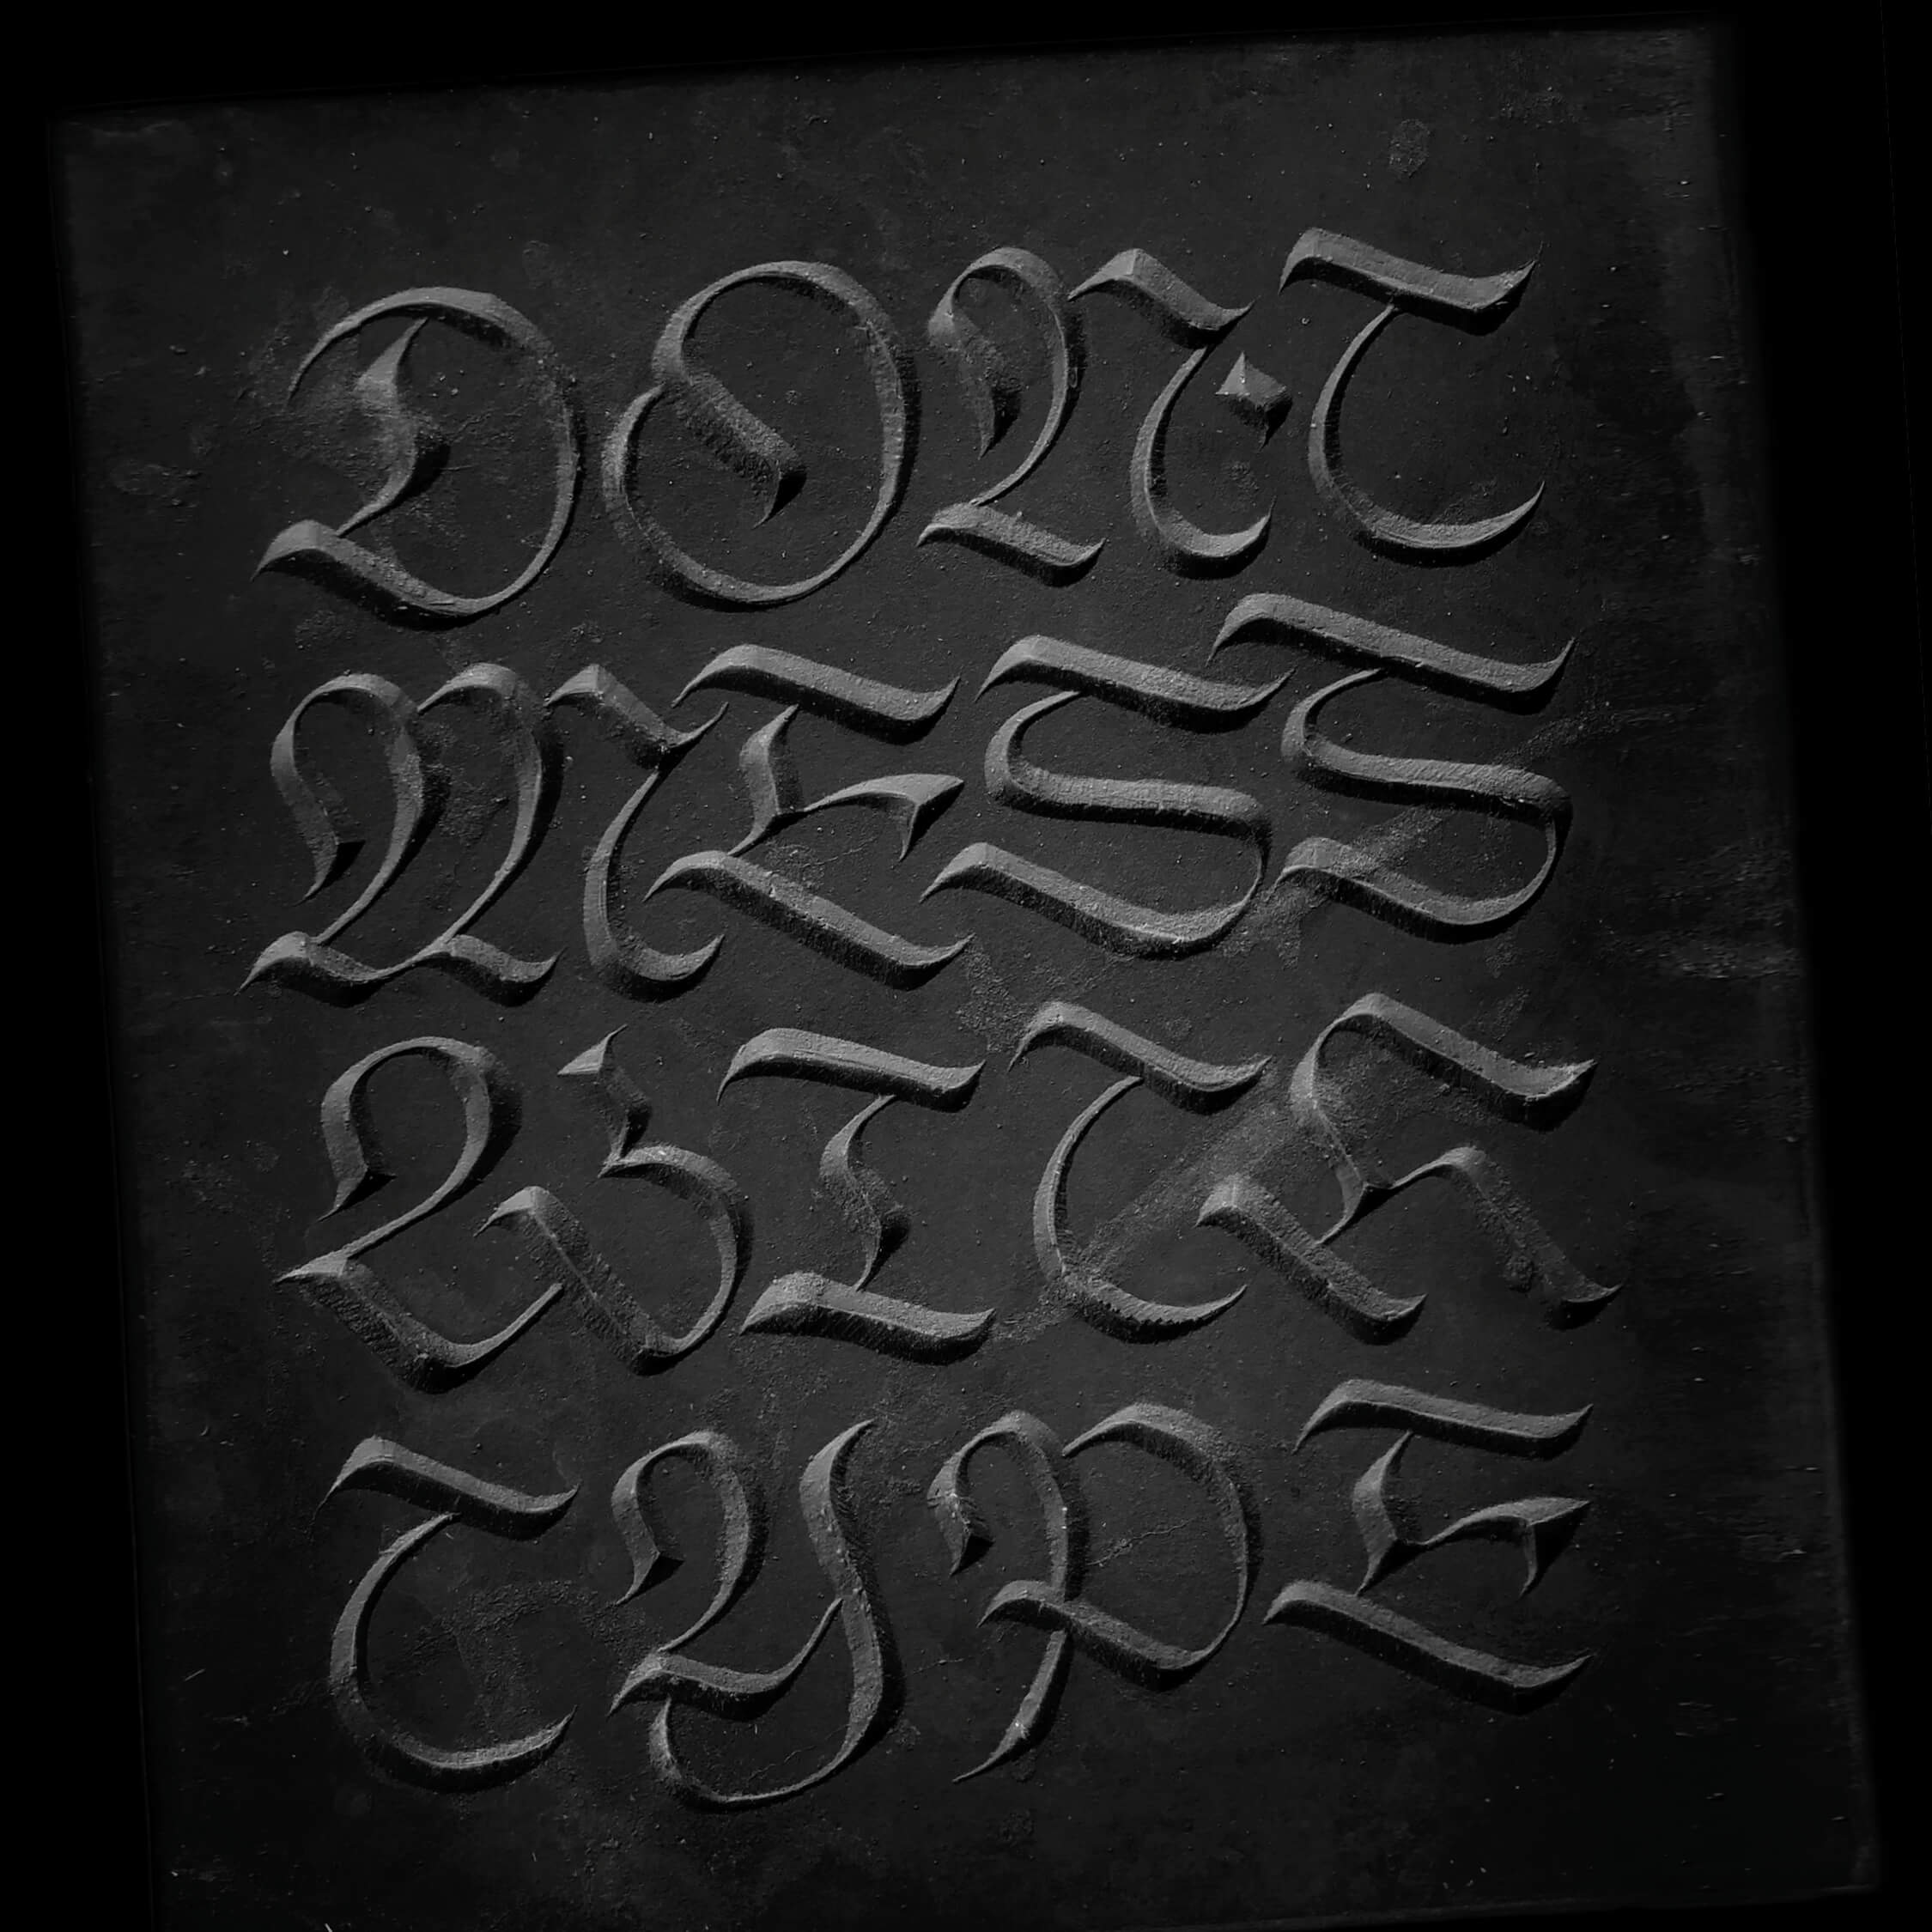 DON'T
MESS
WITH
TYPE